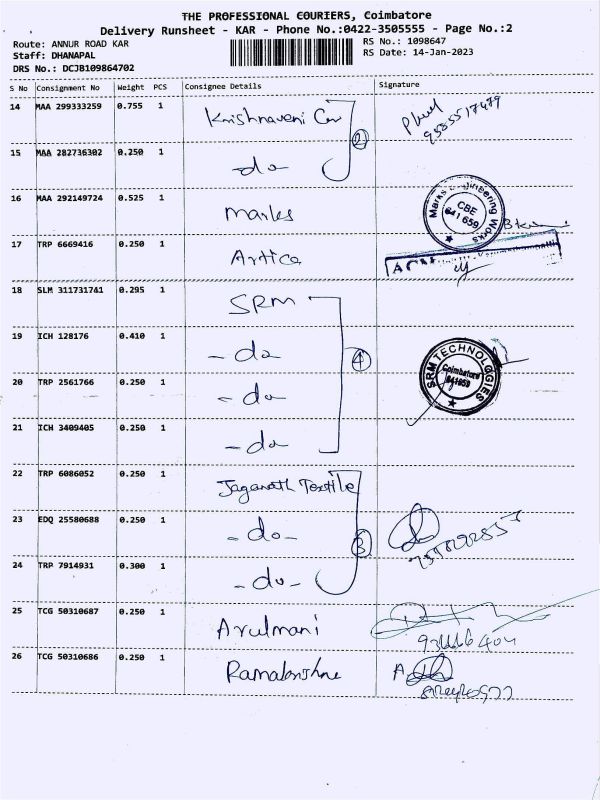 THE PROFESSIONAL COURIERS, Coimbatore
Delivery Runsheet - KAR - Phone No.:0422-3505555 - Page No.:2
Route: ANNUR ROAD KAR
RS No.: 1098647
Staff: DHANAPAL
RS Date: 14-Jan-2023
DRS No.: DCJB109864702
S No Consignment No Weight PCS Consignee Details Signature
14 MAA 299333259 0.755 1 Krishnaveni
15 MAA 282736302 0.250 1 -do 2
16 MAA 292149724 0.525 1 Marks
Marks Engineering Works
CBE
641 659
17 TRP 6669416 0.250 1 Artica
18 SLM 311731741 0.295 1 SRM
19 ICH 128176 0.410 1 -do 4
20 TRP 2561766 0.250 1 -do
SRM TECHNOLOGIES
Coimbatore
641659
21 ICH 3409405 0.250 1 -do
22 TRP 6086052 0.250 1 Jaganath Textile
23 EDQ 25580688 0.250 1 -do- 3
24 TRP 7914931 0.300 1 -do-
25 TCG 50310687 0.250 1 Arulmani
26 TCG 50310686 0.250 1